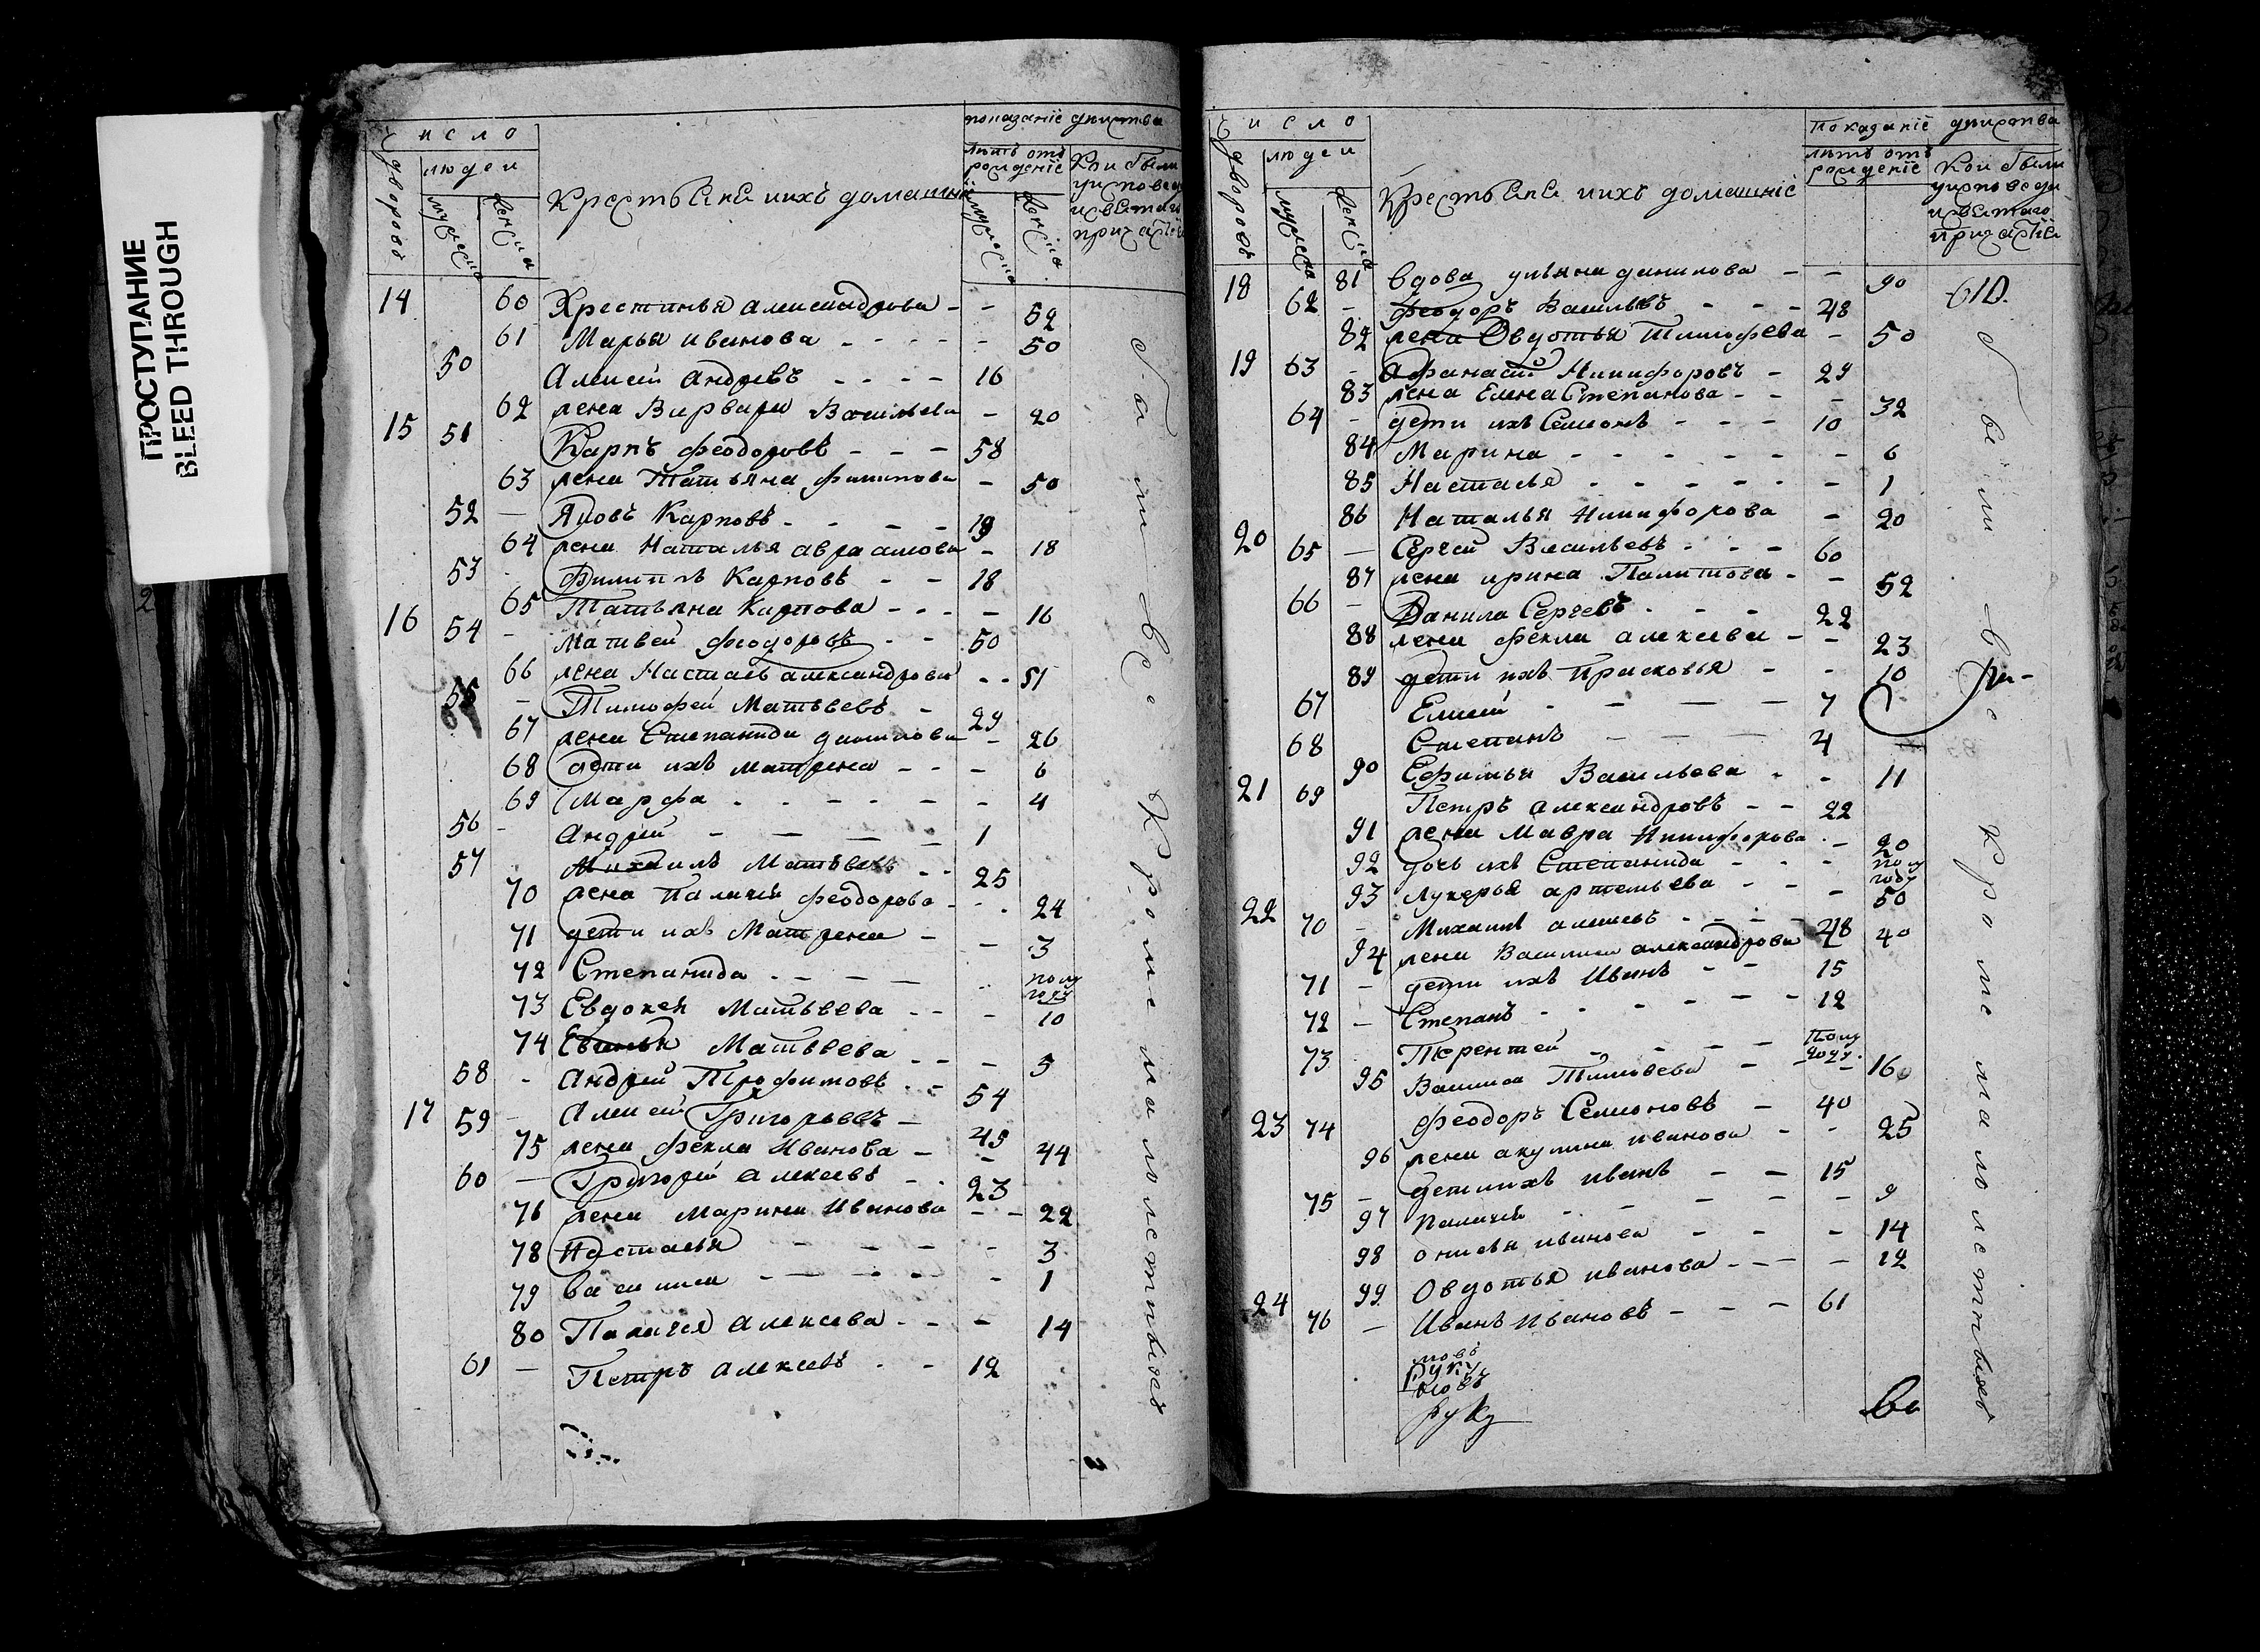 ПРОСТУПАНИЕ
BLEED THROUGH
число
дворовъ
людей
мужеска
женска
Крестьяне и ихъ домашние
показаніе действа
летъ отъ рожденіе
мужеска
женска
Кои были
у исповеди
и святаго
причастия
14 60 Хрестинья Александрова - - 52
61 Марья Иванова - - - - - 50
50 Алексей Андревъ - - - - 16
62 жена Варвара Васильева - 20
15 51 Карпъ Феодоровъ - - - 58
63 жена Татьяна Филипова - 50
52 - Яковъ Карповъ - - - - 19
64 жена Наталья Авраамова - 18
53 - Филиппъ Карповъ - - 18
65 Татьяна Карпова - - - - 16
16 54 - Матвей Феодоровъ - - 50
66 жена Настасья Александрова - - 51
55 - Тимофей Матвеевъ - 29
67 жена Степанида - 26
68 дети ихъ Матрена - - - 6
69 Марфа - - - - - - 4
56 - Андрей - - - - 1
57 - Михаилъ Матвеевъ - - 25
70 жена Палагея Феодорова - - - 24
71 дети ихъ Матрена - - 3
72 Степанида - - - - полу году
73 Евдокея Матвеева - - - 10
74 Матвеева - - - 5
58 - Андрей Трофимовъ - - 54
17 59 - Алексей Григорьевъ - 45
75 жена Фекла Иванова - - 44
60 - Григорей Алексевъ - - 23
76 жена Марина Иванова - - 22
78 Настасья - - - - 3
79 Василиса - - - - - 1
80 Палагея Алексева - - - 14
61 - Петръ Алексевъ - - 12
были все кроме малолетныхъ
число
дворовъ
людей
мужеска
женска
Крестьяне и ихъ домашніе
Показаніе действа
летъ отъ рожденіе
Кои были
у исповеди
и святаго
причастіе
18 81 вдова ульяна данилова - - 90
62 - Феодоръ Васильевъ - - - 48
82 жена Овдотья Тимофева - 50
19 63 - Афанасей Никифоровъ - 29
83 жена Елена Степанова - - - 32
64 - дети ихъ Семионъ - - - 10
84 Марина - - - - - - 6
85 Настасья - - - - - - 1
86 Наталья Никифорова - 20
20 65 - Сергей Васильевъ - - - 60
87 жена ирина - - 52
66 - Данила Сергевъ - - - 22
88 жена Фекла алексева - - 23
89 дети ихъ Прасковья - - 10
67 Елисей - - - - 7
68 Степанъ - - - 4
90 Ефимья Васильева - - 11
21 69 Петръ Александровъ - - 22
91 жена Мавра Никифорова - - 20
92 дочь ихъ Степанида - - - полу году
93 Лукерья артемьева - - - 50
22 70 - Михаила - - - - 48
94 жена Василиса александрова 40
71 - дети ихъ Иванъ - - 15
72 - Степанъ - - - - - 12
73 Терентей - - - - Полу году
95 Василиса - - 16
23 74 Феодоръ Семионовъ - 40
96 жена акулина иванова - - 25
75 - дети ихъ иванъ - - 15
97 палагея - - - - - 9
98 иванова - - - 14
99 Овдотья иванова - - - - 12
24 76 - Иванъ Ивановъ - - - 61
были все кроме малолетныхъ
руку
руку